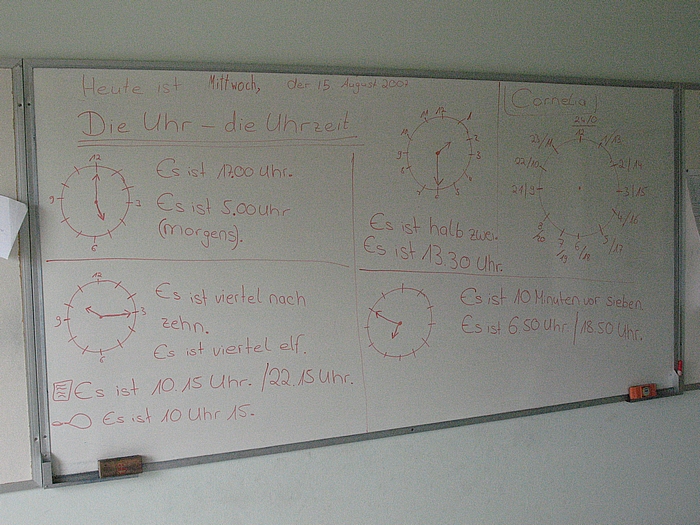 Heute ist Mittwoch, der 15. August 2007
Die Uhr – die Uhrzeit
12
3
6
9
Es ist 17.00 Uhr.
Es ist 5.00 Uhr
(morgens).
12
3
6
9
Es ist viertel nach
zehn.
Es ist viertel elf.
Es ist 10.15 Uhr. / 22.15 Uhr.
Es ist 10 Uhr 15.
12
1
2
3
4
5
6
7
8
9
10
11
Es ist halb zwei.
Es ist 13.30 Uhr.
Es ist 10 Minuten vor sieben
Es ist 6.50 Uhr / 18.50 Uhr.
Cornelia
24/0
12
1/13
2/14
3/15
4/16
5/17
6/18
7/19
8/20
21/9
22/10
23/11